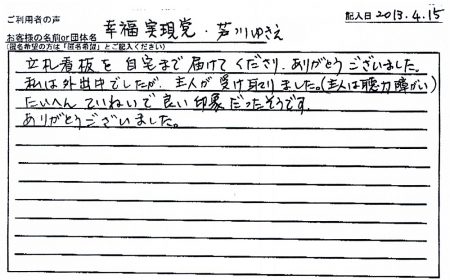 ご利用者の声
記入日 2013.4.15
お客様の名前or団体名 幸福実現党・芦川ゆきえ
(匿名希望の方は「匿名希望」とご記入ください)
立札看板を自宅まで届けてくださり、ありがとうございました。
私は外出中でしたが、主人が受け取りました。(主人は聴力障がい)
たいへんていねいで良い印象だったそうです。
ありがとうございました。